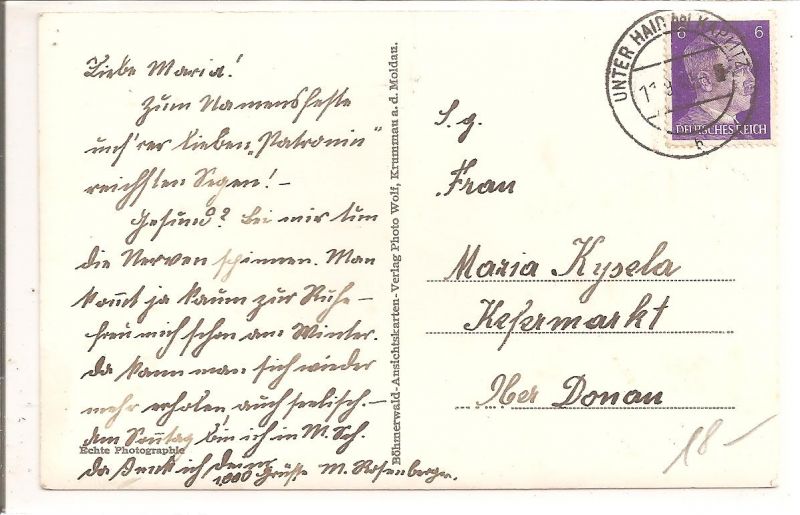 Liebe Maria!
Zum Namensfeste
uns'rer lieben „Patronin"
reichsten Segen! –
Gesund? Bei mir tun
die Nerven spinnen. Man
kommt ja kaum zur Ruhe –
freu mich schon am Winter.
Da kann man sich wieder
mehr erholen, auch seelisch. –
Am Sonntag bin ich in M. Sch.
da denk ich Dein
1,000 Grüsse M. Rosenberger.
Echte Photographie
Böhmerwald-Ansichtskarten-Verlag Photo Wolf, Krummau a. d. Moldau.
UNTER HAID KAPLITZ
6 6
DEUTSCHES REICH
S. g.
Frau
Maria Kysela
Kefermarkt
Ober Donau
18 –